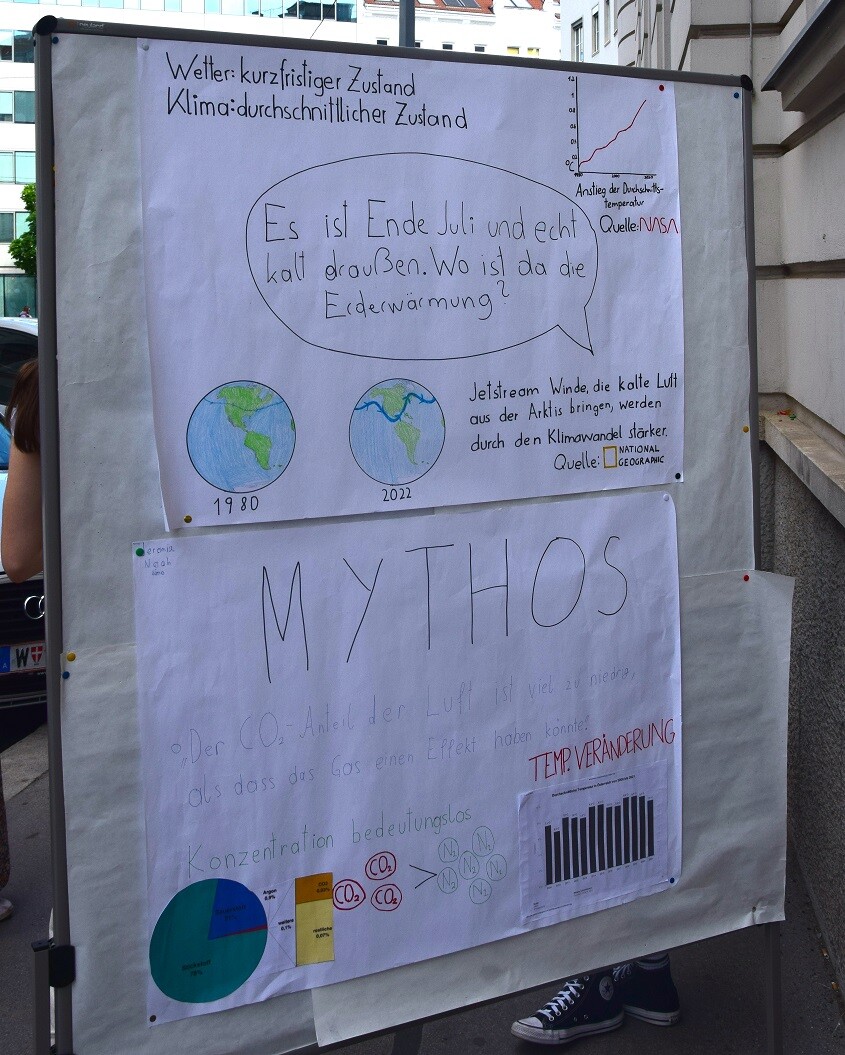 Wetter: kurzfristiger Zustand
Klima: durchschnittlicher Zustand
°C
Anstieg der Durchschnitts-
temperatur
Quelle: NASA
Es ist Ende Juli und echt
kalt draußen. Wo ist da die
Erderwärmung?
Jetstream Winde, die kalte Luft
aus der Arktis bringen, werden
durch den Klimawandel stärker.
Quelle: NATIONAL
GEOGRAPHIC
1980
2022
MYTHOS
"Der CO₂-Anteil der Luft ist viel zu niedrig,
als dass das Gas einen Effekt haben könnte?
TEMP. VERÄNDERUNG
Konzentration bedeutungslos
CO₂ CO₂ CO₂ > N₂ N₂ N₂ N₂ N₂ N₂
Argon
0,9%
weitere
0,1%
restliche
0,07%
Stickstoff
78%
W